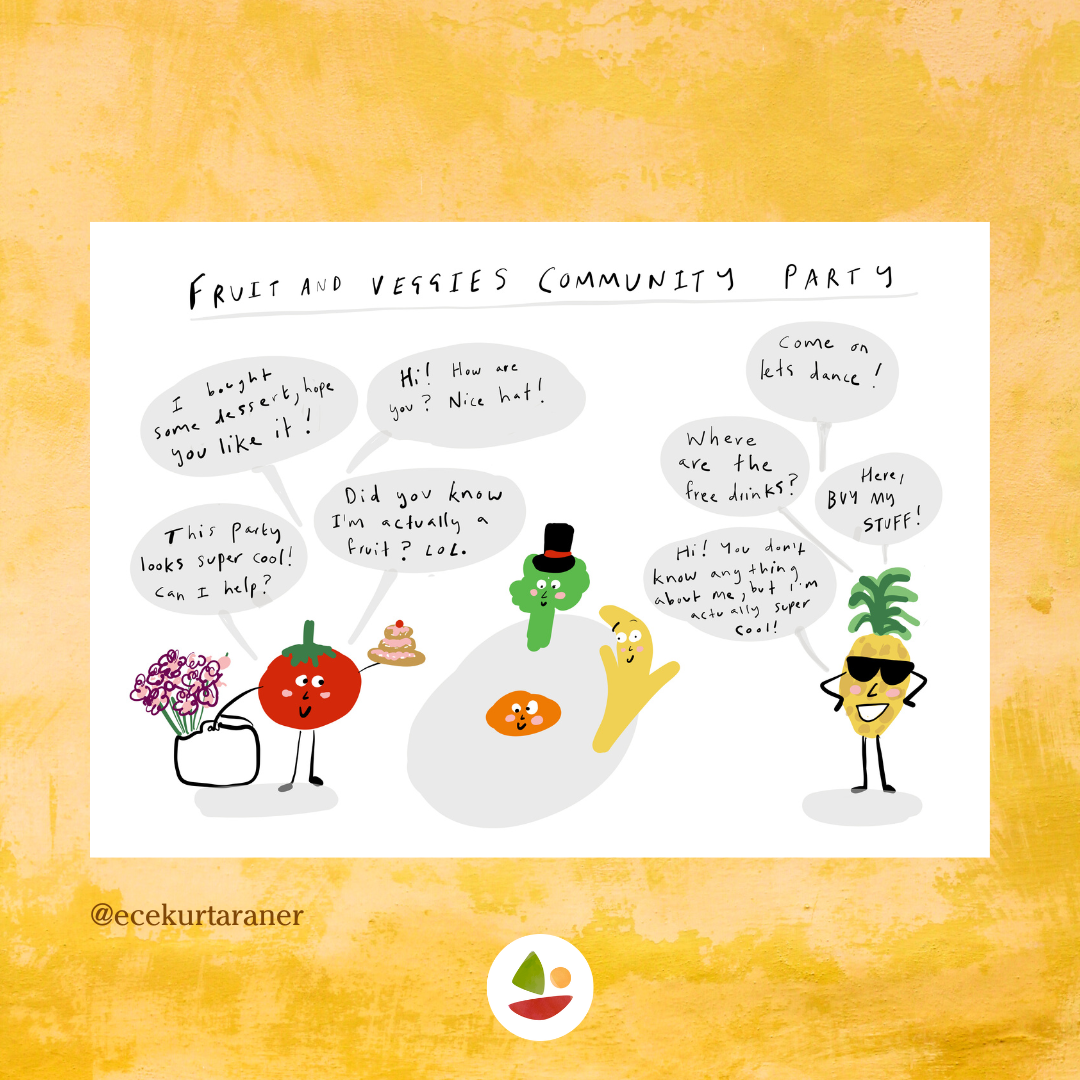 FRUIT AND VEGGIES COMMUNITY PARTY
I bought
some dessert, hope
you like it!
Hi! How are
you? Nice hat!
This party
looks super cool!
can I help?
Did you know
I'm actually a
fruit? LOL.
Come on
lets dance!
Where
are the
free drinks?
Here,
BUY MY
STUFF!
Hi! You don't
know anything
about me, but I'm
actually super
cool!
@ecekurtaraner